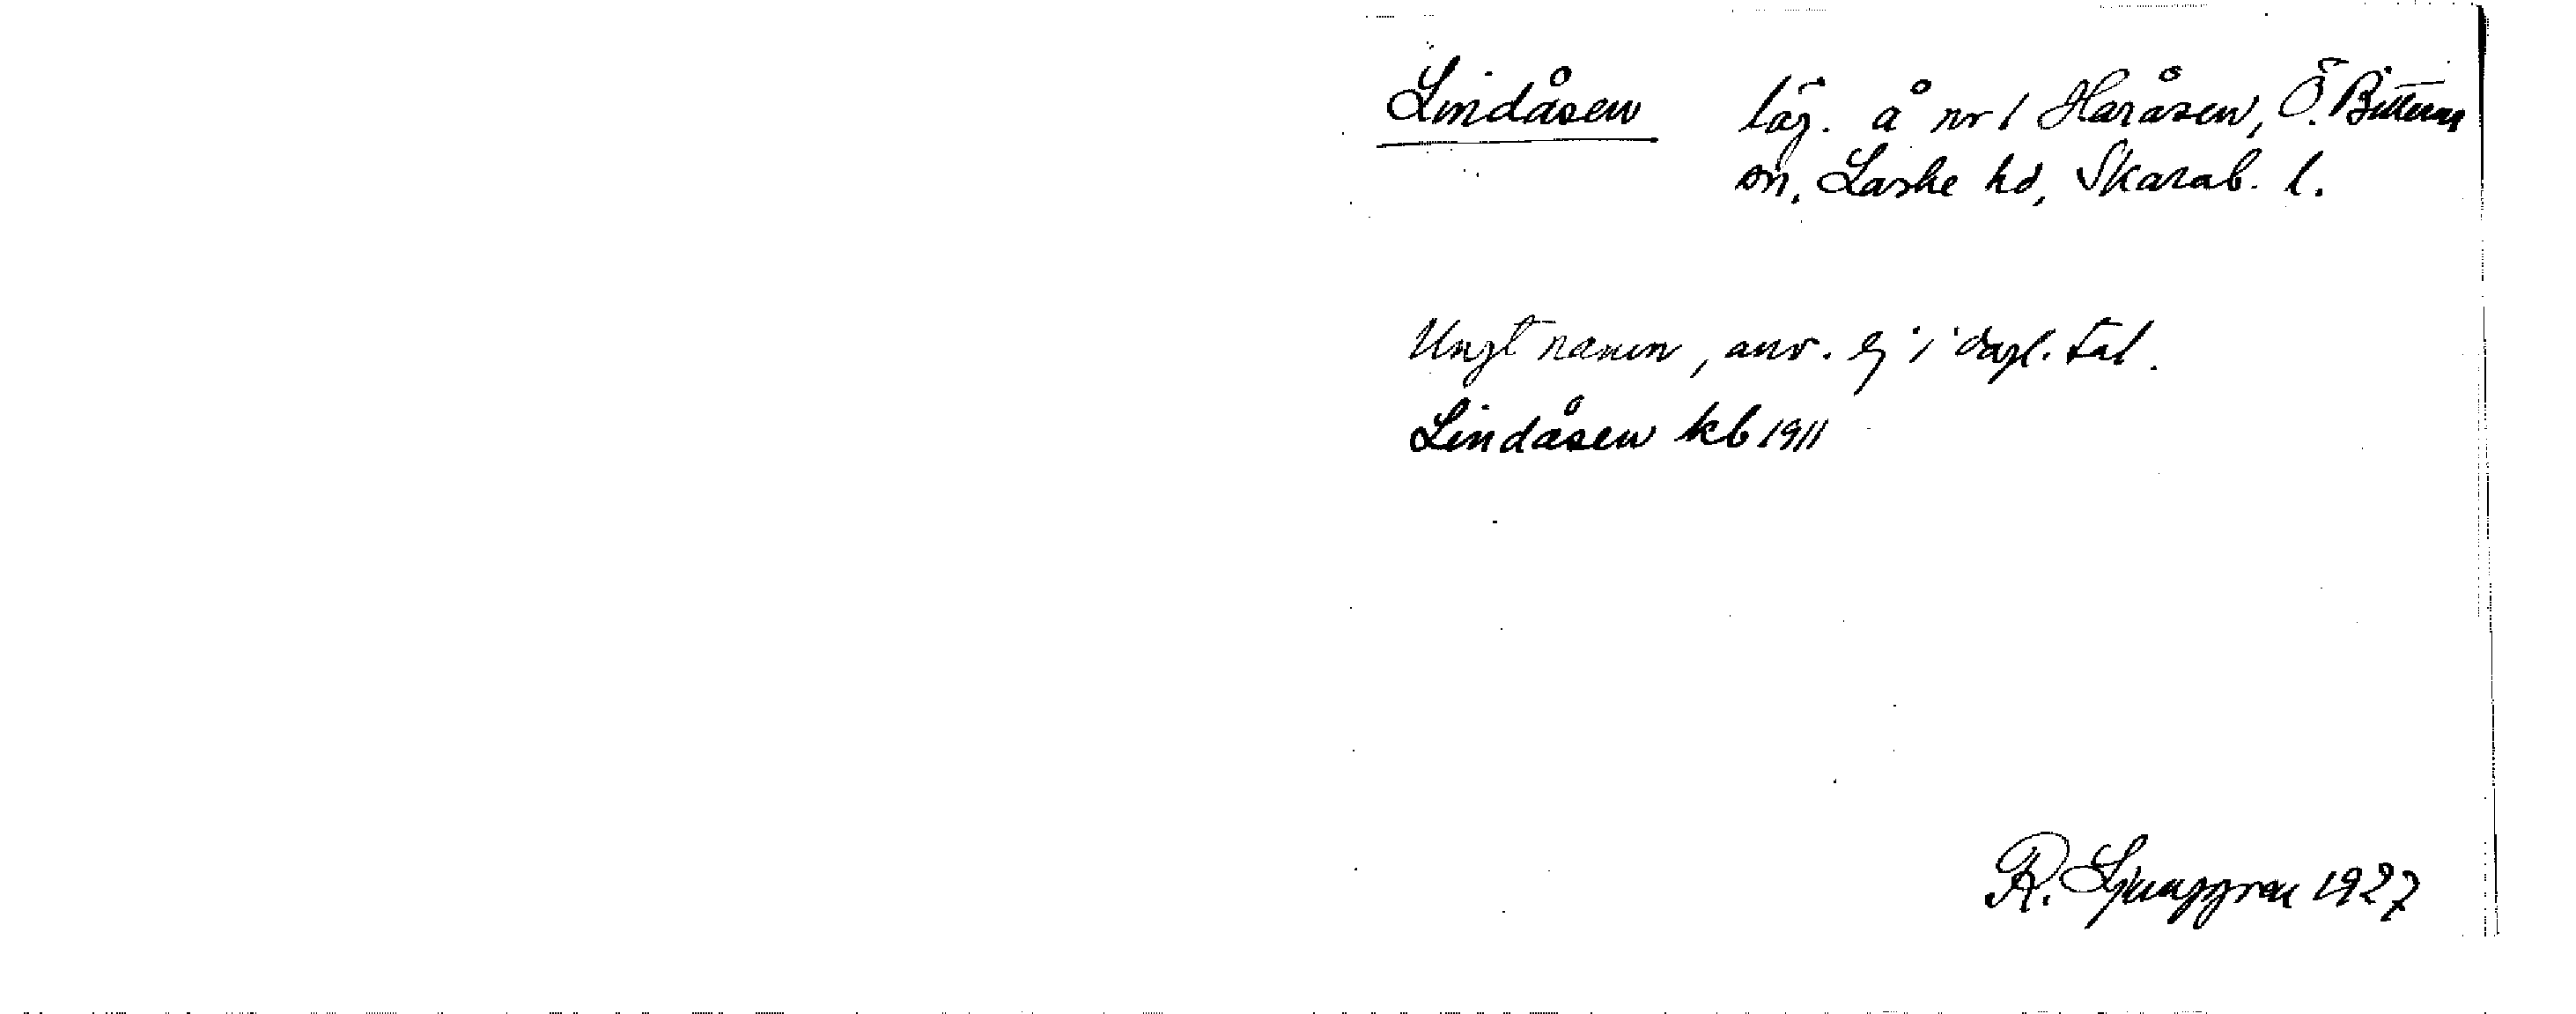 Lindåsen läg. å nr 1 Haråsen, Ö. Bitterna
sn, Laske hd, Skarab. l.
Ungt namn, anv. ej i dagl. tal.
Lindåsen kb 1911
R. Ljunggren 1927